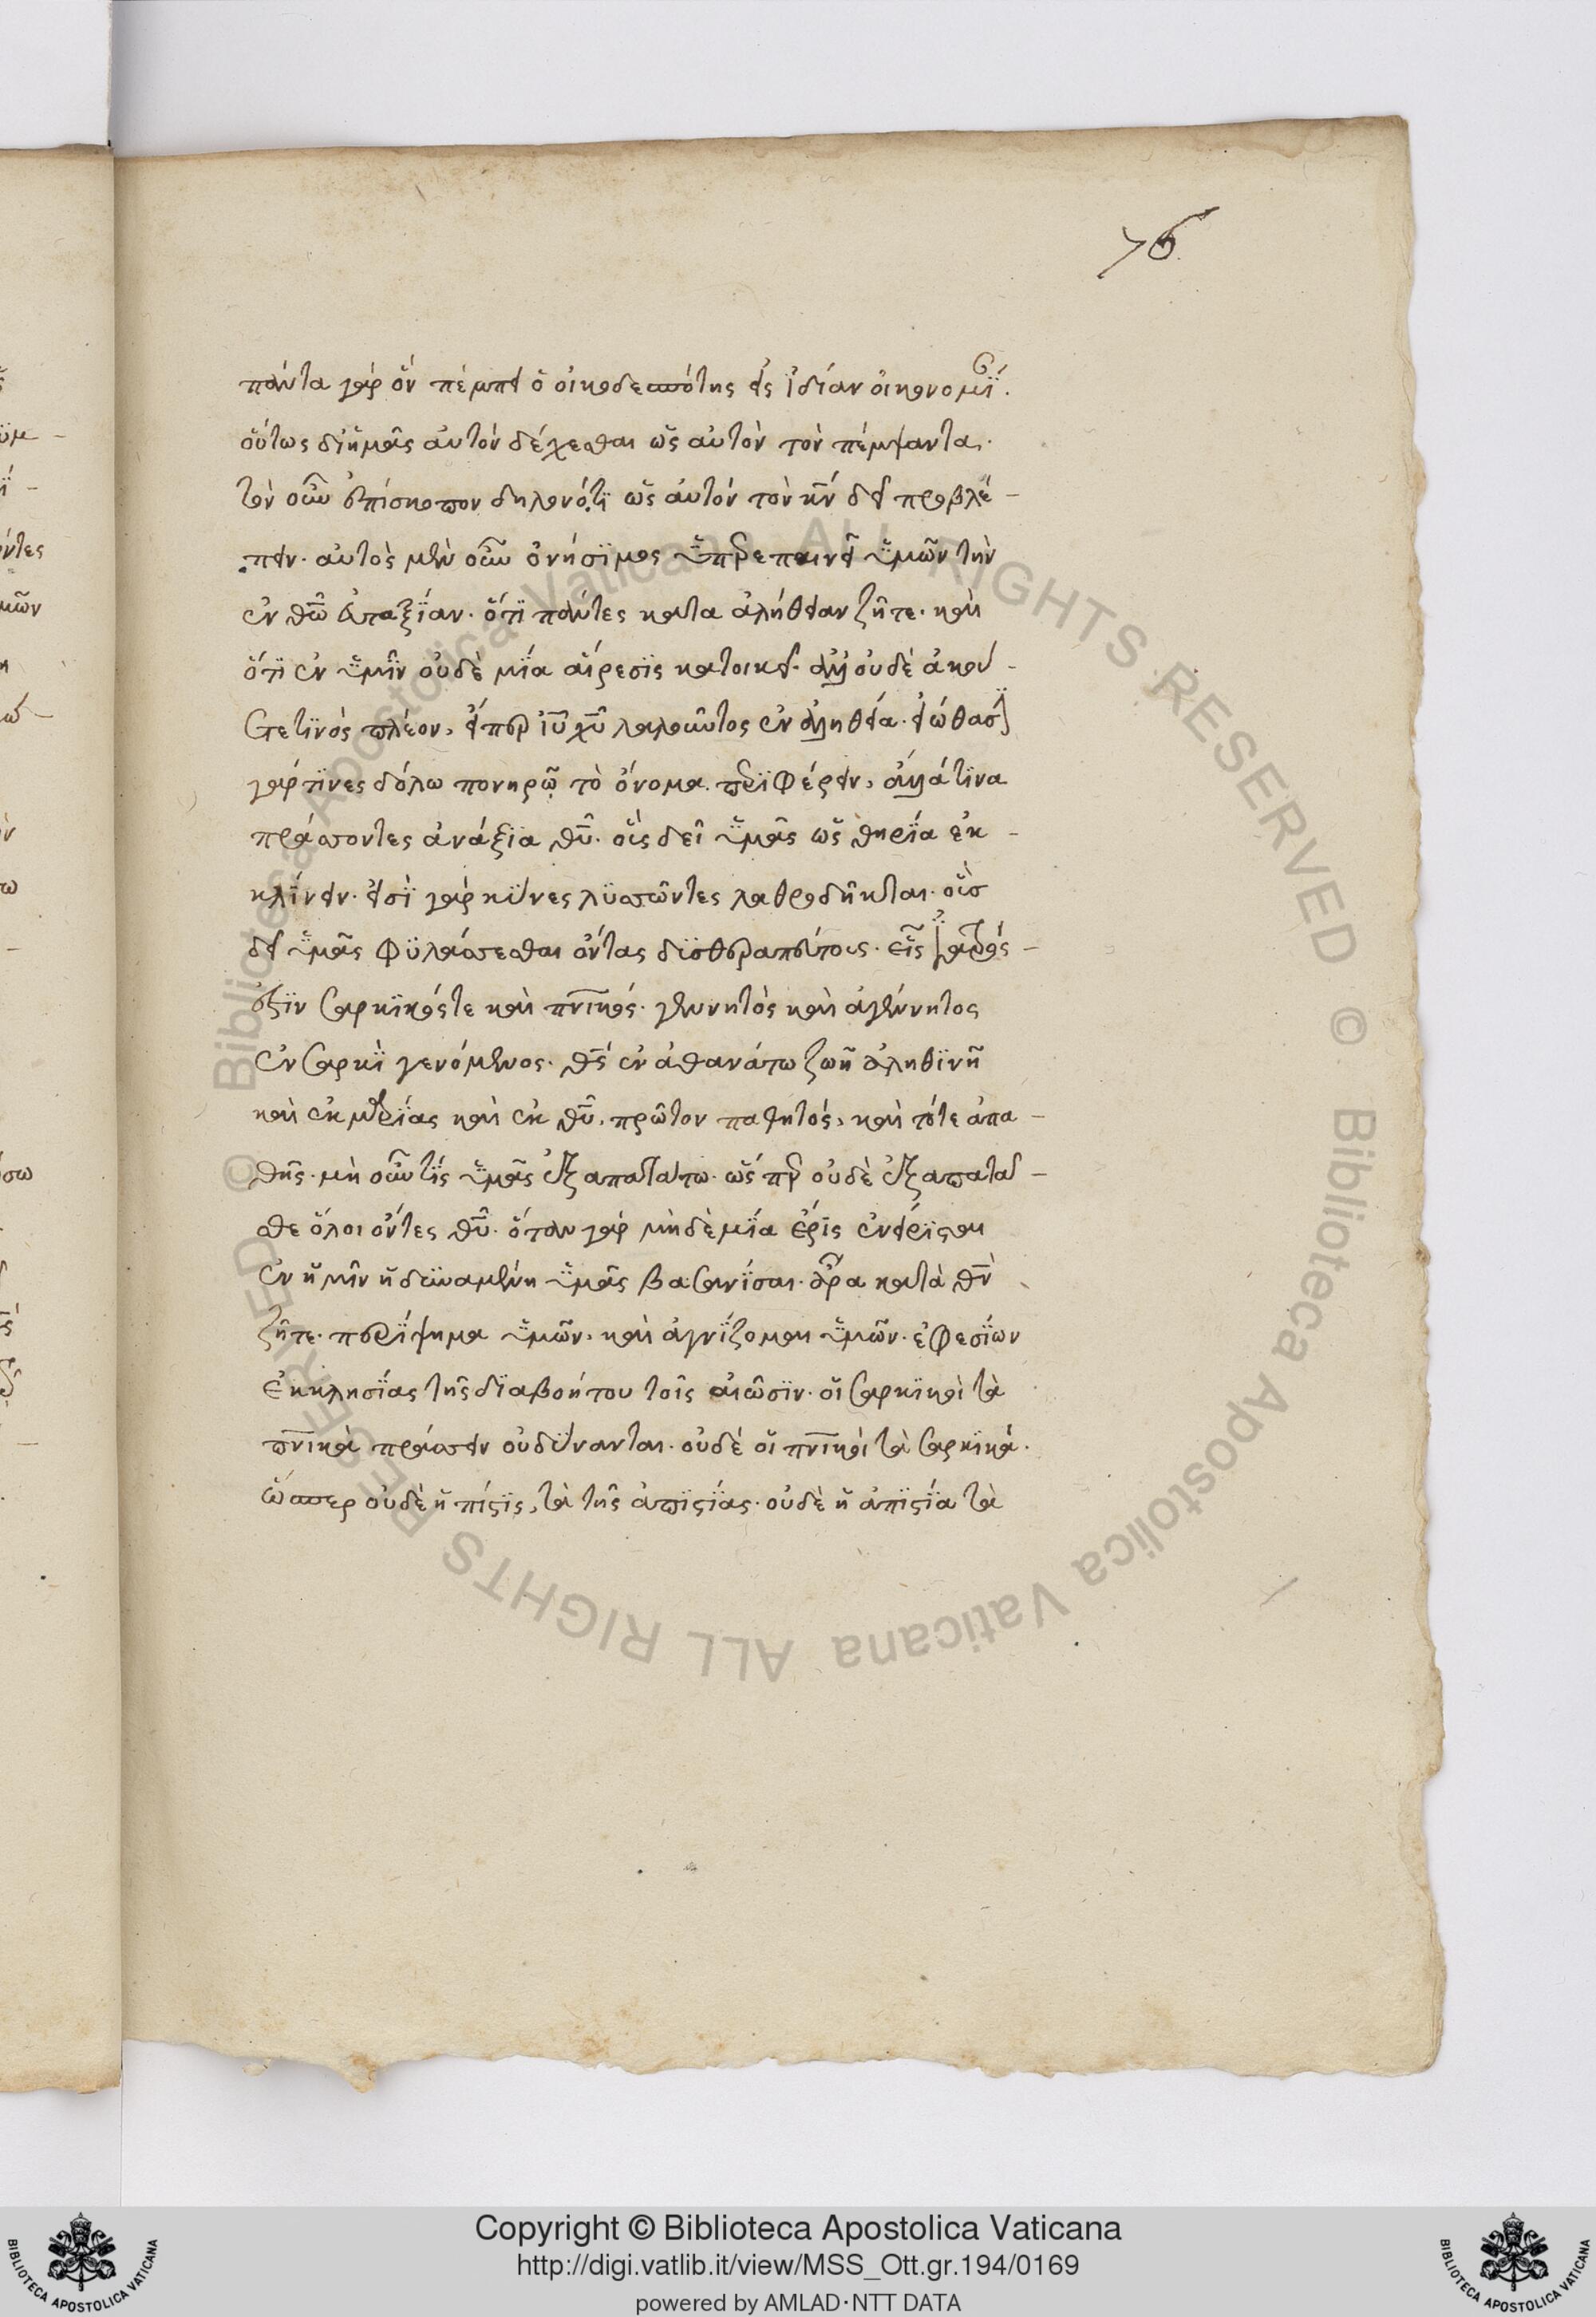 76.
πάντα γὰρ ὃν πέμπει ὁ οἰκοδεσπότης εἰς ἰδίαν οἰκονομΐ.
οὕτως δεῖ ἡμᾶς αὐτὸν δέχεσθαι ὡς αὐτὸν τὸν πέμψαντα.
τὸν οὖν ἐπίσκοπον δηλονότϊ ὡς αὐτὸν τὸν κ̅ν̅ δεῖ προβλέ -
πειν. αὐτὸς μὲν οὖν ὀνήσϊμος ὑπερεπαινεῖ ὑμῶν τὴν
ἐν θ̅ῶ̅ εὐταξΐαν. ὅτϊ πάντες κατα ἀλήθειαν ζῆτε. καὶ
ὅτϊ ἐν ὑμῖν οὐδὲ μΐα αἵρεσϊς κατοικεῖ. ἀλλ' οὐδὲ ἀκού -
ετέ τϊνὸς πλέον, εἴπερ ι̅υ̅ χ̅υ̅ λαλοῦντος ἐν ἀληθεία. εἰώθασϊ
γάρ τϊνες δόλω πονηρῷ τὸ ὄνομα περϊφέρειν, ἀλλά τϊνα
πράσσοντες ἀνάξϊα θ̅υ̅. οὓς δεῖ ὑμᾶς ὡς θηρΐα ἐκ -
κλΐνειν. εἰσῒ γὰρ κύνες λϋσσῶντες λαθροδῆκται. οὓσ
δεῖ ὑμᾶς φϋλάσσεσθαι ὄντας δϋσθεραπεύτους. εἷς ἰατρός -
ἐστϊν σαρκϊκός τε καὶ πν̅ϊκός. γεννητὸς καὶ ἀγέννητος
ἐν σαρκῒ γενόμενος. θ̅ς̅ ἐν ἀθανάτω ζωῆ ἀληθϊνῆ
καὶ ἐκ μαρΐας καὶ ἐκ θ̅υ̅. πρῶτον παθητός, καὶ τότε ἀπα -
θῆς. μὴ οὖν τϊς ὑμᾶς ἐξαπατάτω. ὥσπερ οὐδὲ ἐξαπατᾶ -
σθε ὅλοι ὄντες θ̅υ̅. ὅταν γὰρ μὴδὲμΐα ἔρϊς ἐνείρϊσται
ἐν ἡμῖν ἡ δϋναμένη ὑμᾶς βασανΐσαι. ἄρα κατὰ θ̅ν̅
ζῆτε. περΐψημα ὑμῶν, καὶ ἁγνΐζομαι ὑμῶν. ἐφεσΐων
ἐκκλησΐας τῆς δϊαβοήτου τοῖς αἰῶσϊν. οἱ σαρκϊκοὶ τὰ
πν̅ϊκὰ πράσσειν οὐ δύνανται. οὐδὲ οἱ πν̅ϊκοὶ τὰ σαρκϊκά.
ὥσπερ οὐδὲ ἡ πίστϊς, τὰ τῆς ἀπϊστΐας. οὐδὲ ἡ ἀπϊστΐα τὰ
Copyright © Biblioteca Apostolica Vaticana
http://digi.vatlib.it/view/MSS_Ott.gr.194/0169
powered by AMLAD·NTT DATA